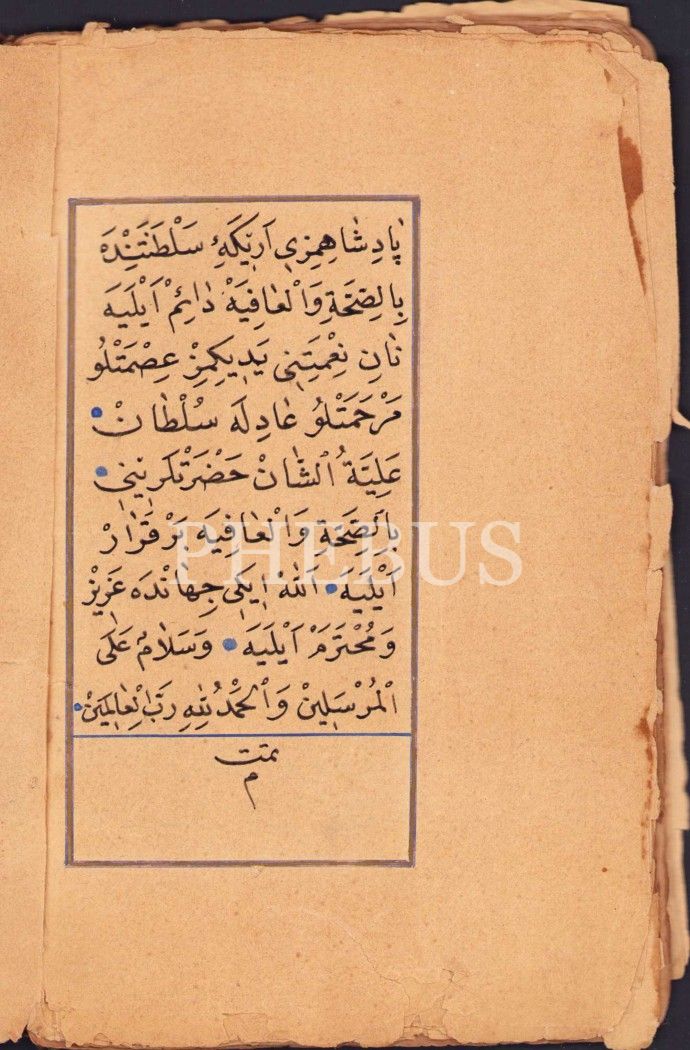 پَادِشَاهِمِزِي اَرِيكَهِٔ سَلْطَنَتِنْدَه
بِالصِّحَّةِ وَالْعَافِيَةْ دَائِمْ اَيْلَيَه
نَانِ نِعْمِتِنِي يَدِيكِمِزْ عِصْمَتْلُو
مَرْحَمَتْلُو عَادِلَه سُلْطَانْ
عَلِيَّةُ الشَّانْ حَضْرَتْلَرِينِي
بِالصِّحَّةِ وَالْعَافِيَه بَرْقَرَارْ
اَيْلَيَه اَللّٰه اِيكِي جِهَانْدَه عَزِيزْ
وَمُحْتَرَمْ اَيْلَيَه وَسَلَامٌ عَلَى
الْمُرْسَلِينْ وَالْحَمْدُ لِلّٰهِ رَبِّ الْعَالَمِينْ
تمت
م
PHEBUS